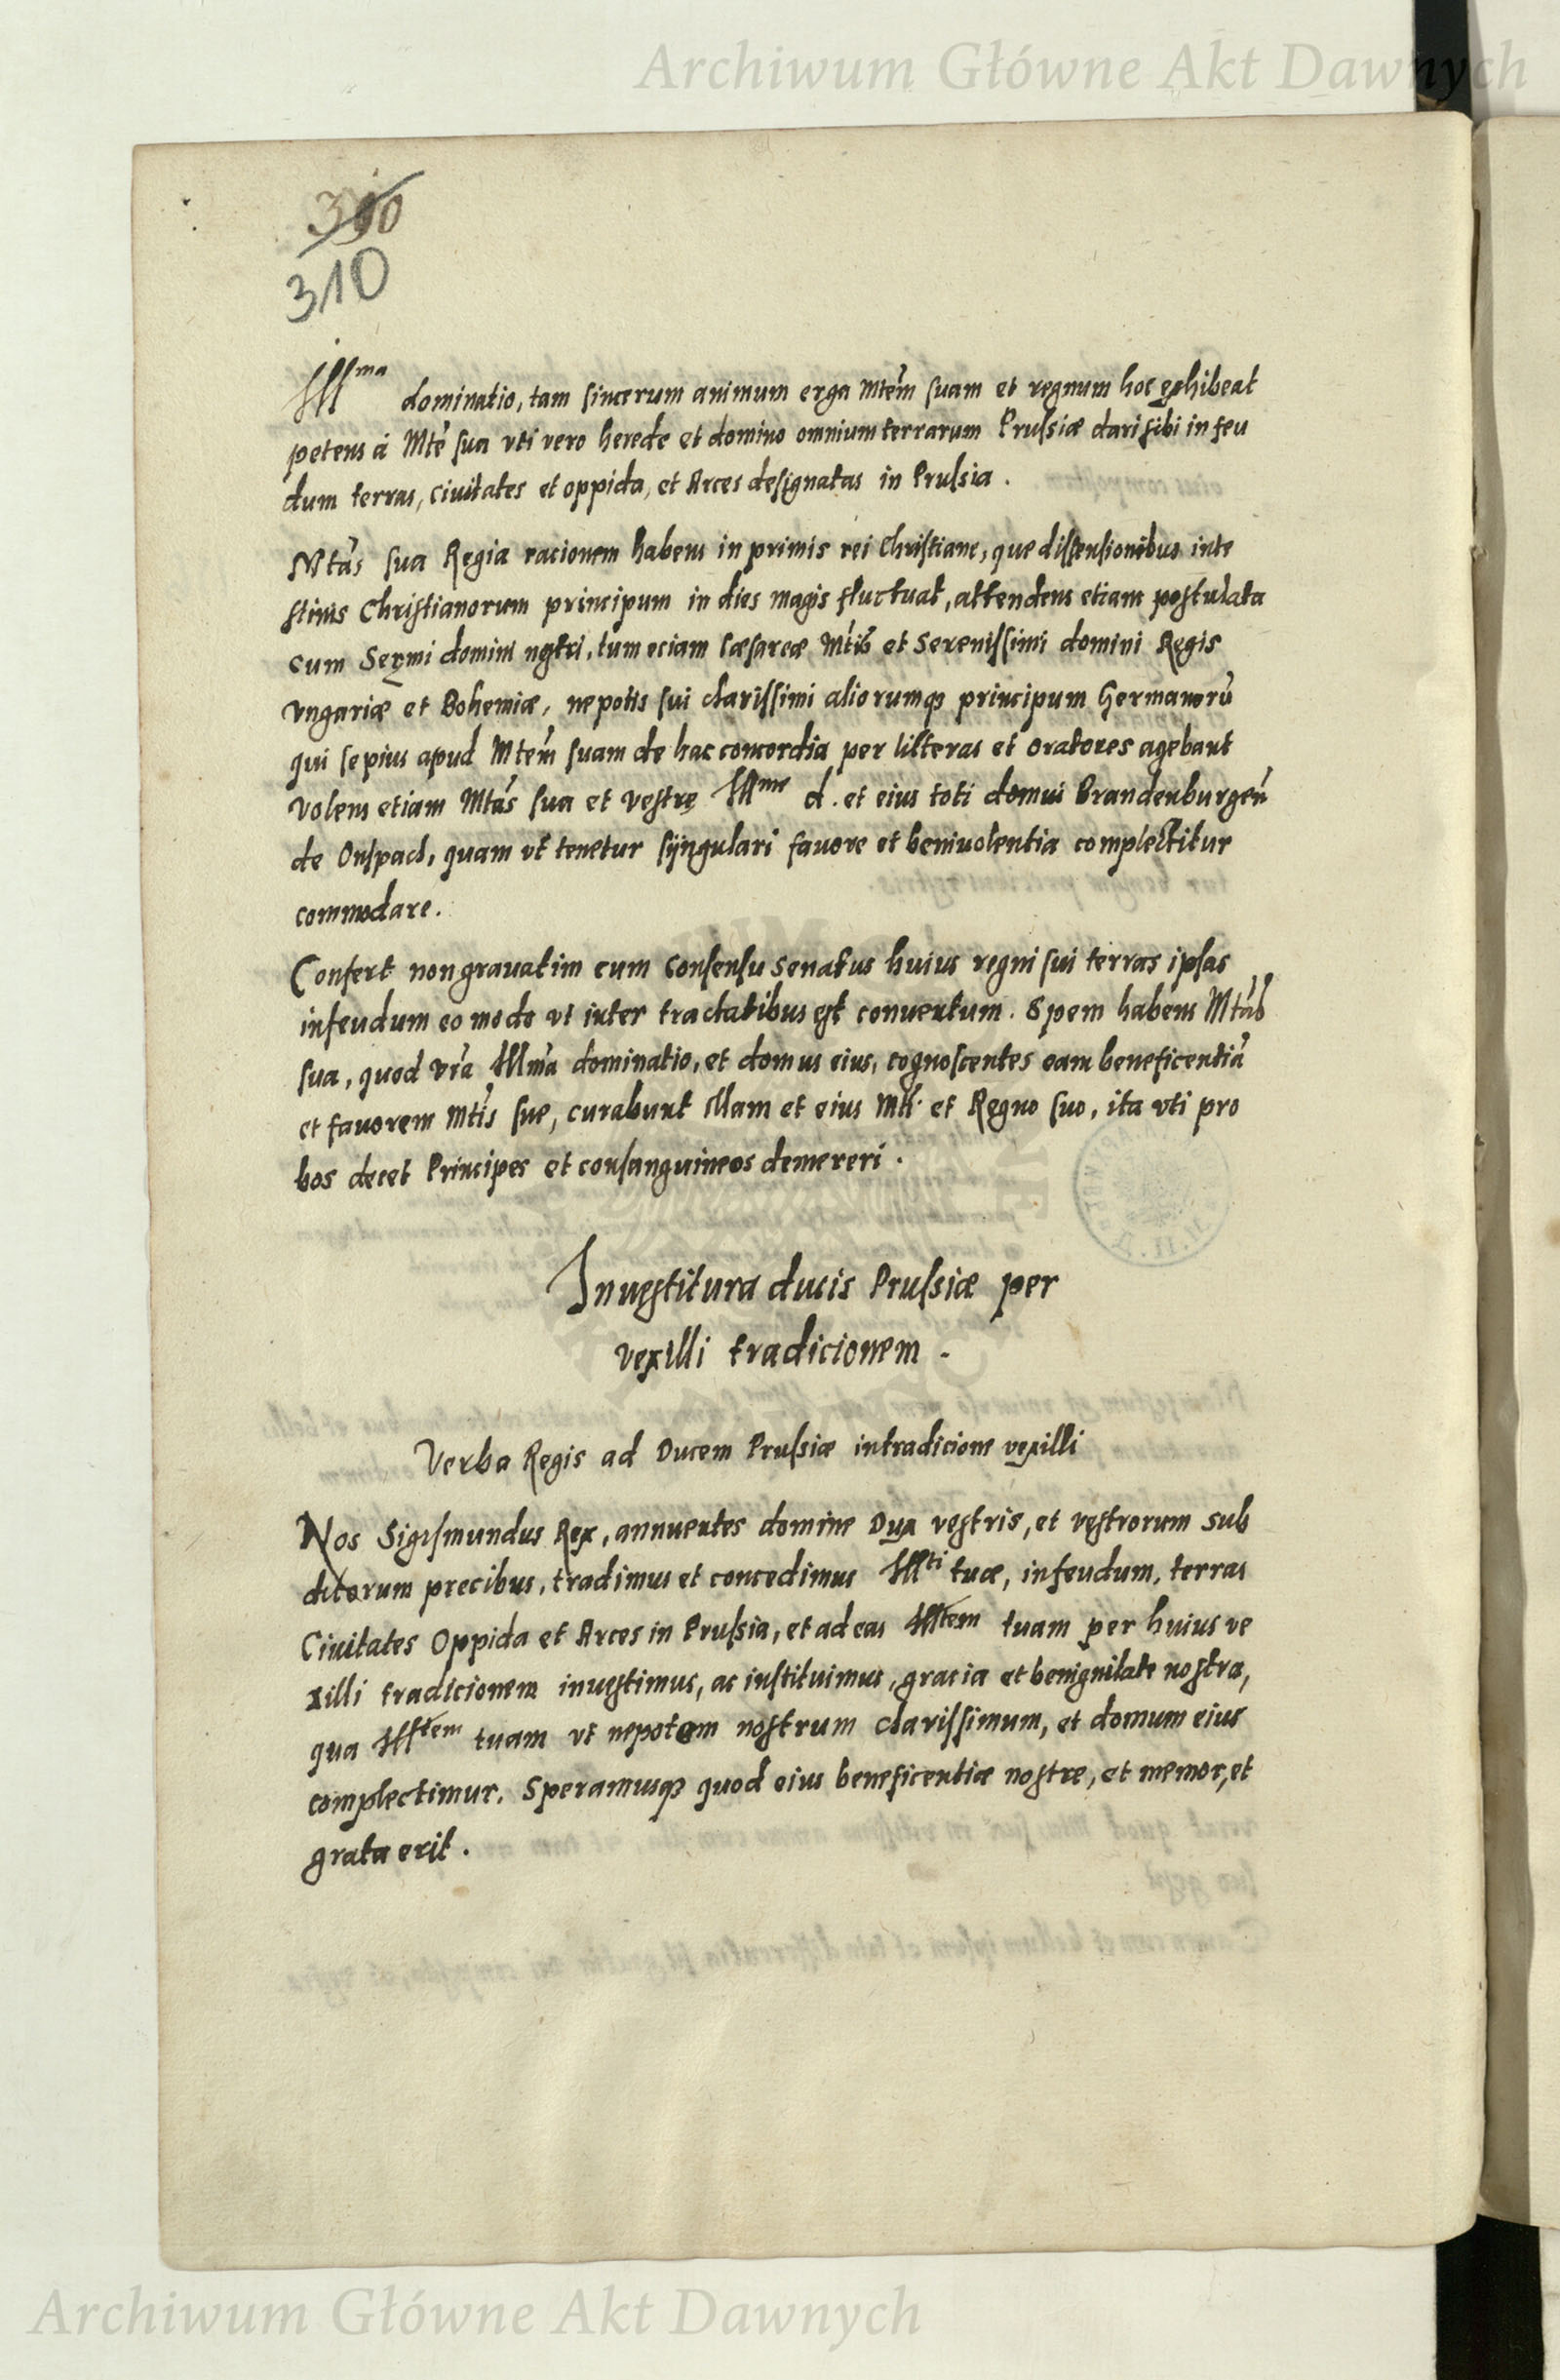 Archiwum Główne Akt Dawnych
310
Illma dominatio, tam sincerum animum erga Mtem suam et regnum hoc exhibeat
petens à Mte sua vti vero herede et domino omnium terrarum Prussiæ dari sibi in feu
dum terras, civitates et oppida, et Arces designatas in Prussia.
Mtas sua Regia racionem habens in primis rei Christiane, que dissensionibus inte
stinis Christianorum principum in dies magis fluctuat, attendens etiam postulata
cum Sermi domini nostri, tum eciam Cæsareæ Mtis et Serenissimi domini Regis
vngariæ et Bohemiæ, nepotis sui clarissimi aliorumq principum Germanorū
qui sepius apud Mtem suam de hac concordia per litteras et oratores agebant
volens etiam Mtas sua et vestrę Illme d. et eius toti domui Brandenburgeñ
de Onspach, quam vt tenetur singulari fauore et beniuolentia complectitur
commodare.
Confert non grauatim cum consensu senatus huius regni sui terras ipsas
infeudum eo modo vt inter tractatibus est conuentum. Spem habens Mtas
sua, quod vra Illma dominatio, et domus eius, cognoscentes eam beneficentiā
et fauorem Mtis sue, curabunt illam et eius Mti et Regno suo, ita vti pro
bos decet Principes et consanguineos demereri.
Inuestitura ducis Prussiæ per
vexilli tradicionem.
Verba Regis ad Ducem Prussiæ intradicione vexilli
Nos Sigismundus Rex, annuentes domine Dux vestris, et vestrorum sub
ditorum precibus, tradimus et concedimus Illti tuæ, infeudum, terras
Ciuitates Oppida et Arces in Prussia, et ad eas Illtem tuam per huius ve
xilli tradicionem inuestimus, ac instituimus, gracia et benignitate nostra,
qua Illtem tuam vt nepotem nostrum clarissimum, et domum eius
complectimur. Speramusq quod eius beneficentiæ nostre, et memor, et
grata erit.
Archiwum Główne Akt Dawnych